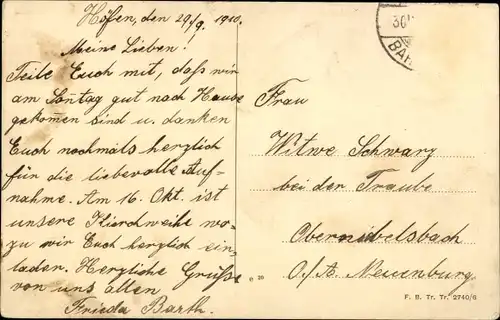 Höfen, den 29/9. 1910.
Meine Lieben!
Teile Euch mit, dass wir
am Sontag gut nach Hause
gekomen sind u. danken
Euch nochmals herzlich
für die liebevolle Auf-
nahme. Am 16. Okt. ist
unsere Kirchweihe wo-
zu wir Euch herzlich ein-
laden. Herzliche Grüsse
von uns allen
Frieda Barth.
30
BA
Frau
Witwe Schwarz
bei der Traube
Oberniebelsbach
O./A. Neuenburg.
e 20
F. B. Tr. Tr. 2740/6